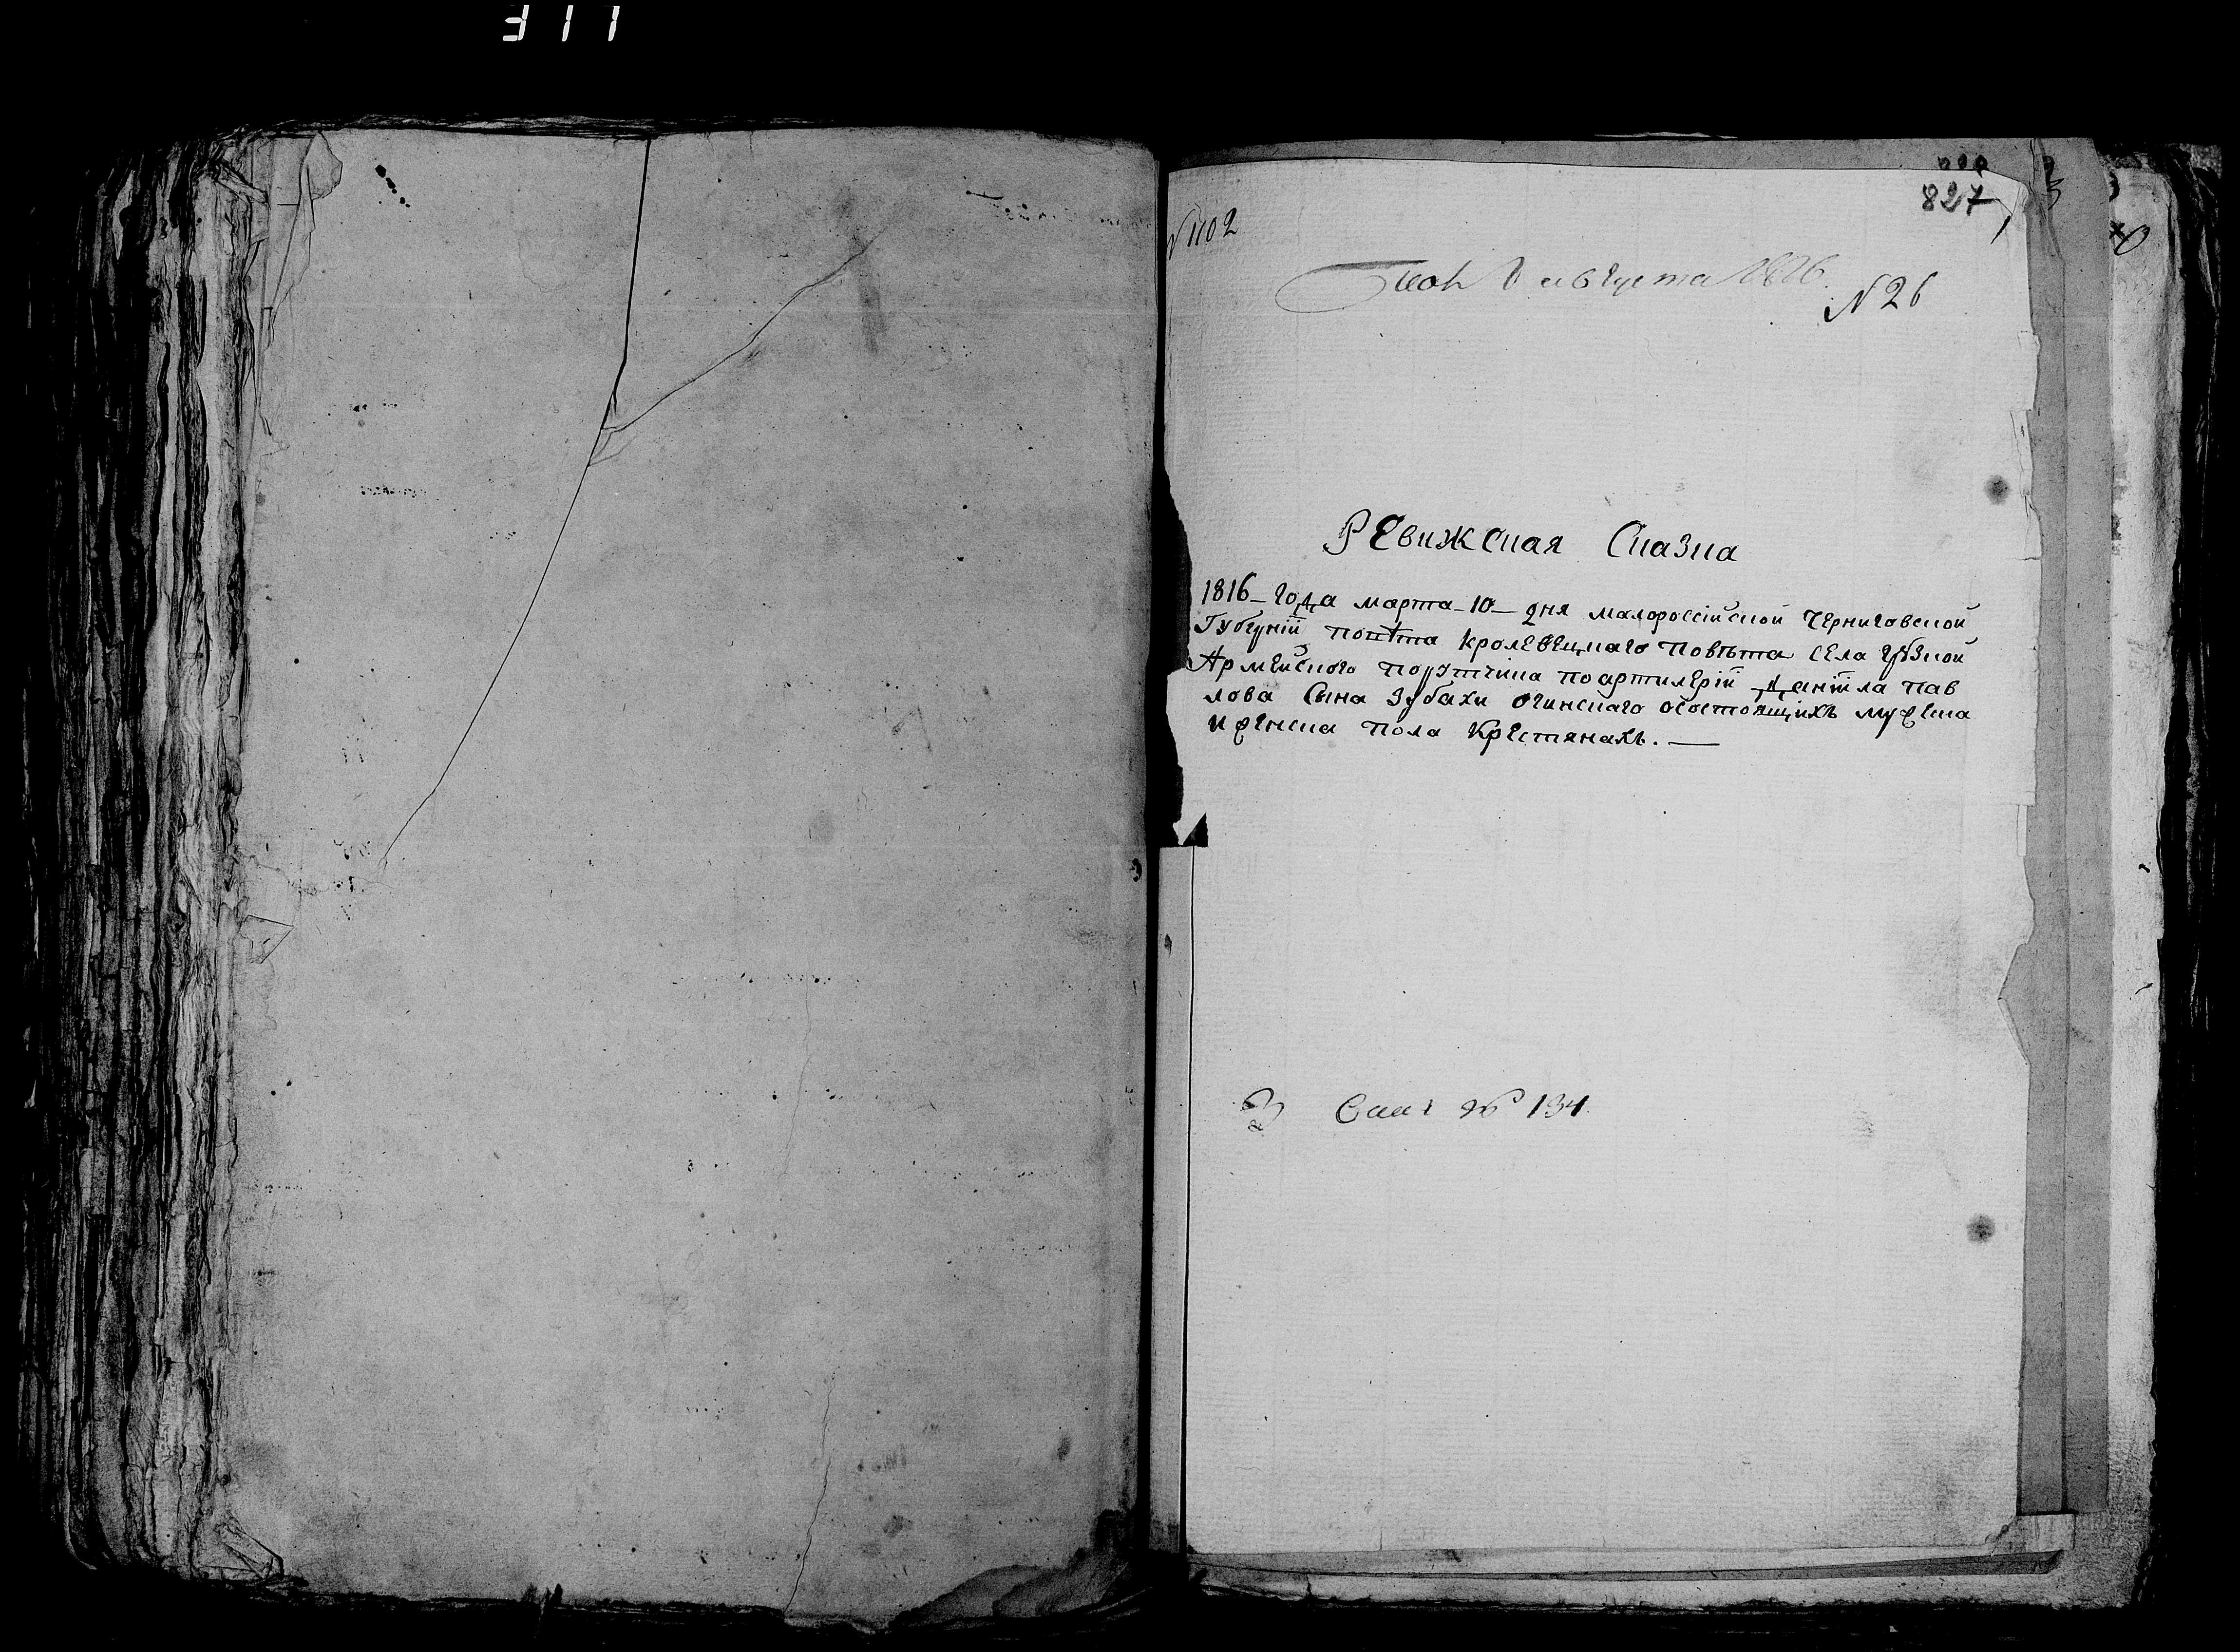 317
827
№ 1102
августа 1816
№ 26
Ревижская Сказка
1816 – года марта – 10 – дня малороссійской Черниговской
Губерніи повѣта Кролевецкаго повѣта села
Армейского порутчика по артилеріи Даніила Пав
лова Сына Зубахи Огинскаго осостоящихъ мужеска
и женска пола Крестянахъ. —
№ 134